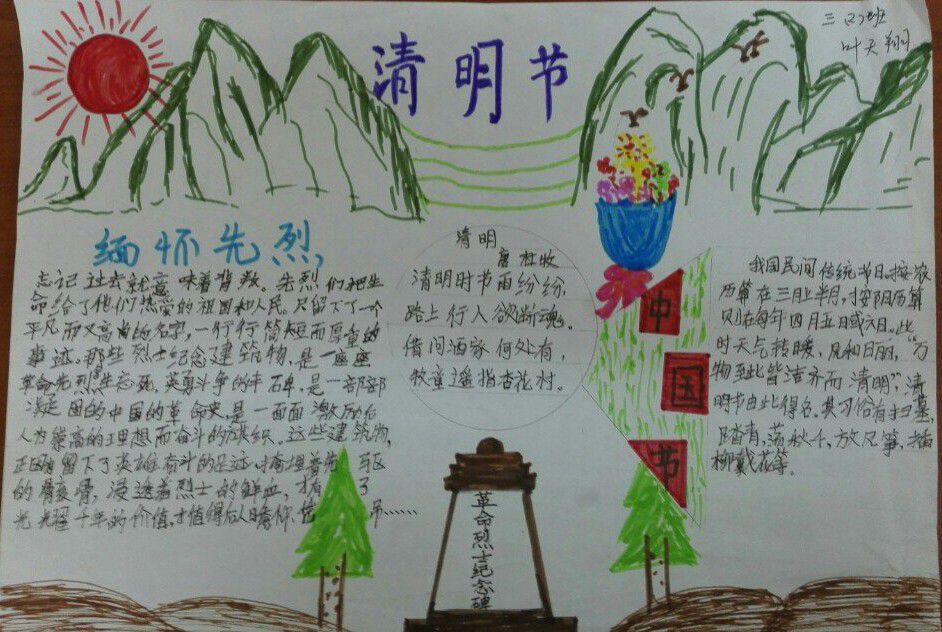 清明节
三(2)班
叶天翔
缅怀先烈
忘记过去就意味着背叛。先烈们把生
命给了他们热爱的祖国和人民。只留下了一个
平凡而又高尚的名字,一行行简短而厚重的
事迹。那些烈士纪念建筑物,是一座座
革命先烈生态死,英勇斗争的丰石卑,是一部部
凝固的中国的革命史,是一面面激励后
人为崇高的理想而奋斗的旗织。这些建筑物,
留下了英雄奋斗的足迹,掩埋着先
的骨,浸透着烈士的鲜血,才有了
光耀千年的价值,才值得后人瞻仰、
吊……
清明
唐 杜牧
清明时节雨纷纷
路上行人欲断魂。
借问酒家何处有,
牧童遥指杏花村。
中
国
节
我国民间传统节日。按农
历算在三月上半月,按阳历算
则在每年四月五日或六日。此
时天气转暖,风和日丽,“万
物至此皆洁齐而清明”,清
明节由此得名。其习俗有扫墓、
踏青、荡秋千、放风筝,插
柳戴花等。
革命烈士纪念碑